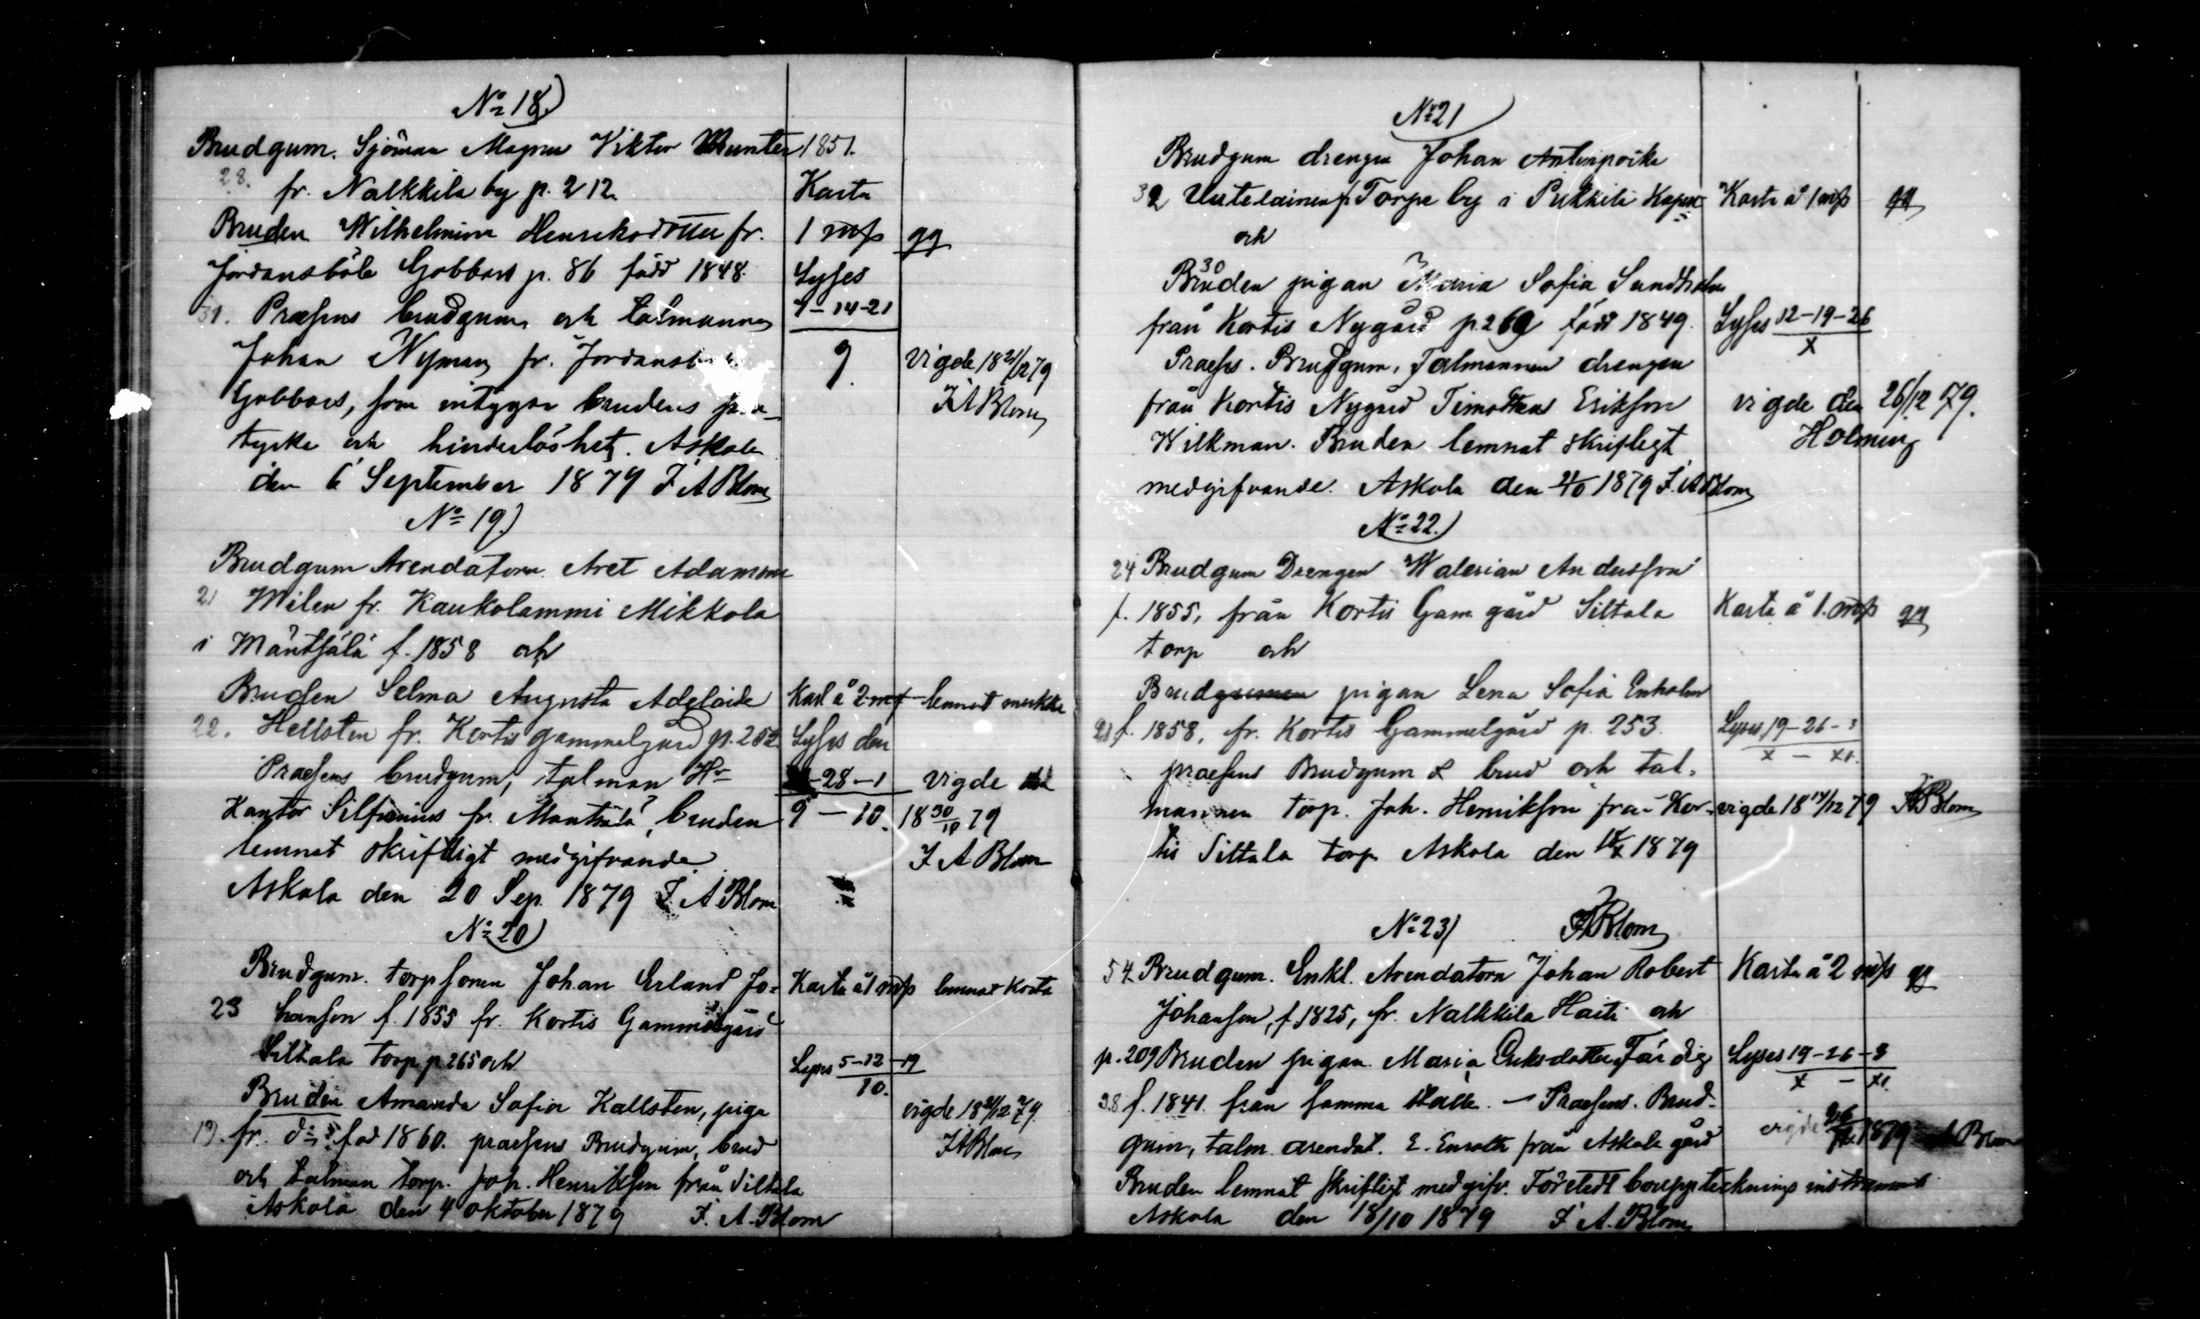 No 18)
Brudgum. Sjöman Magnus Viktor Munter 1851.
28. fr. Nalkkila by p. 212. Karta
Bruden Wilhelmina Henriksdotter fr. 1 mk gg
Jordansböle Gobbas p. 86 född 1848. Lyses
31. Præsens brudgum och talmannen 7-14-21
Johan Nyman fr. Jordansb 9. vigde 18 21/12 79
Gobbas, som intygar brudens F A Blom
tycke och hinderlöshet. Askola
den 6 September 1879 F A Blom
No 19)
Brudgum Arendatorn Aret Adamsson
21 Milen fr. Kaukolammi Mikkola
i Mäntsälä f. 1858 och
Bruden Selma Augusta Adelaide Kart à 2 mk lemnat
22. Hellsten fr. Kortis gammelgård p. 252 Lyses den
Præsens brudgum, talman Hr -28-1 vigde
Kantor Silfvenius fr. Mäntsälä, bruden 9-10. 18 30/10 79
lemnat skriftligt medgifvande. F A Blom
Askola den 20 Sep. 1879 F. A Blom
No 20)
Brudgum. torpsonen Johan Erland Jo- Karta à 1 mk lemnat Karta
23 hansson f. 1855 fr. Kortis Gammelgård
Siltala torp p 265 och Lyses 5-12-19
10.
Bruden Amanda Sofia Kallsten, piga vigde 18 21/12 79.
19. fr. do föd 1860. præsens Brudgum, brud F A Blom
och talman torp. Joh. Henriksson från Siltala
Askola den 4 oktober 1879 F. A. Blom
No 21
Brudgum drengen Johan Antinpoika
32 Uutelainen fr Torpe by i Pukkila Kapell Karta à 1 mk gg
och
30
Bruden pigan Maria Sofia Sundholm
från Kortis Nygård p 262 född 1849. Lyses 12-19-26
X
Præsens. Brudgum, Talmannen drengen
från Kortis Nygård Timotheus Eriksson vigde den 26/12 79.
Wilkman. Bruden lemnat skriflegt Holming
medgifvande. Askola den 11/10 1879 F. A Blom
No 22.)
24 Brudgum Drengen Walerian Andersson
f. 1855, från Kortis Gam gård Siltala Karta à 1. mk gg
torp och
Brudgumen pigan Lena Sofia Enholm
21 f. 1858, fr. Kortis Gammelgård p. 253. Lyses 19-26-3
X - XI.
præsens Brudgum & brud och tal-
mannen torp. Joh. Henriksson från Kor- vigde 18 14/12 79 F A Blom
tis Siltala torp Askola den 18/X 1879
No 23) F A Blom
54 Brudgum. Enkl. Arendatorn Johan Robert Karta à 2 mk gg
Johansson, f. 1825, fr. Nalkkila Haiti och
p. 209 Bruden pigan Maria Eriksdotter Färdig Lyses 19-26-3
X - XI.
38 f. 1841. från samma ställe. - Præsens. Brud-
gum, talm. arendat. E. Enroth från Askola gård vigde 26/12 1879 F A Blom
Bruden lemnat skrifligt medgifv. Företedt bouppteknings instrument
Askola den 18/10 1879 F. A. Blom